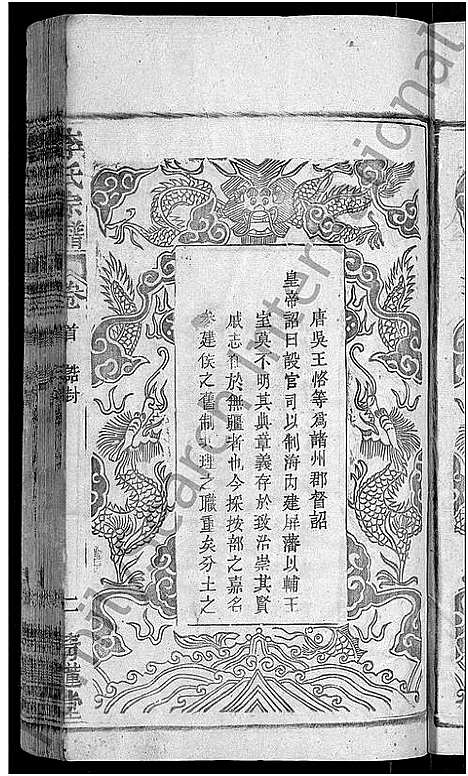 唐吳王恪等爲諸州郡督詔
皇帝詔曰設官司以制海內建屏藩以輔王
室莫不明其典章義存於致治崇其賢
戚志在於無疆者也今採按部之嘉名
參建侯之舊制共理之職重矣分土之
李氏宗譜
卷首
誥封
二